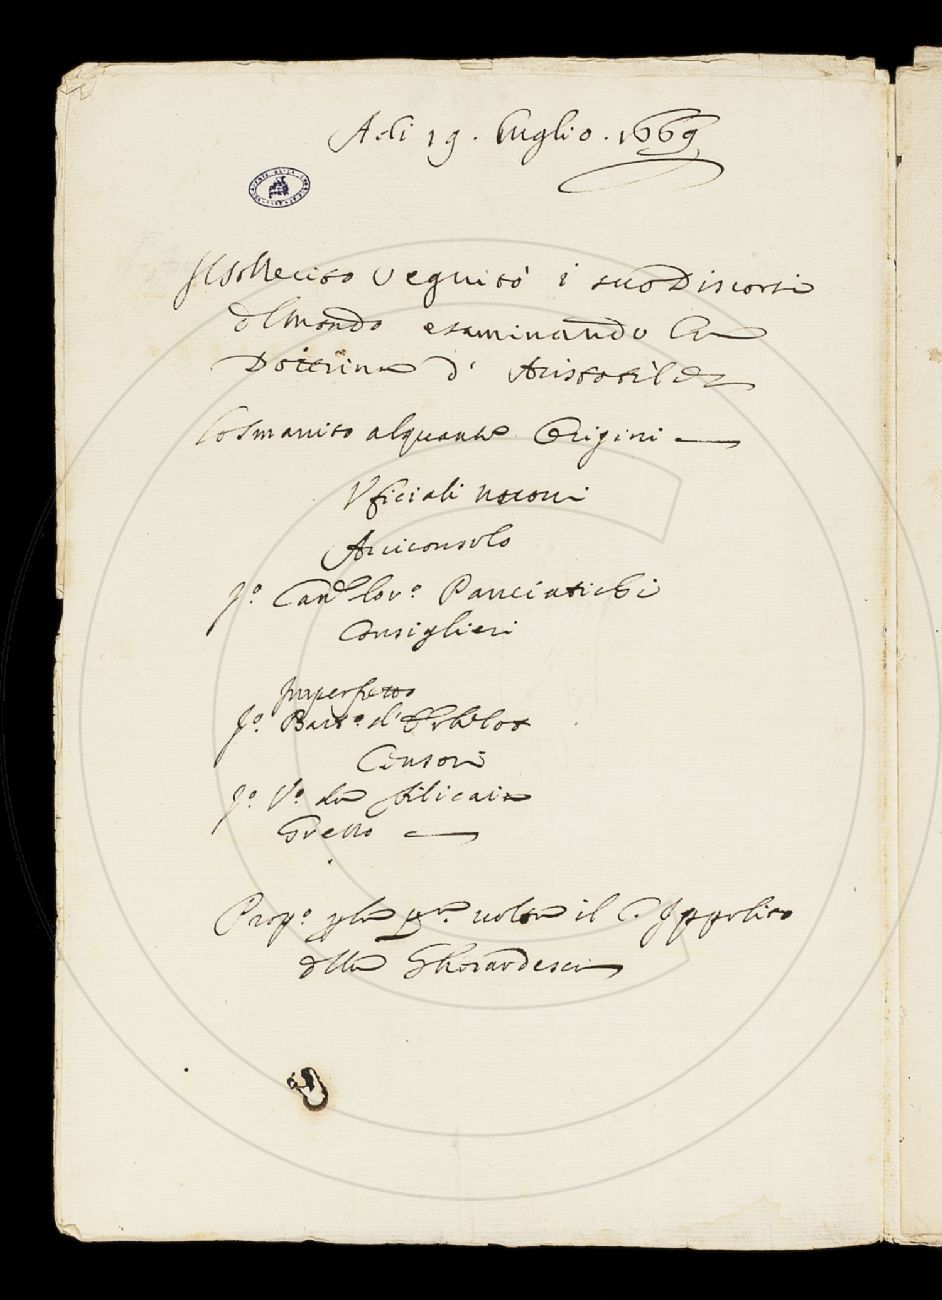 A di 19. luglio. 1669
Il Sollecito seguitò i suoi Discorsi
del mondo esaminando la
Dottrina d' Aristotile
lo Smarrito alquante Origini
Vficiali nuoui
Arciconsolo
Jº. Cand. Lorº. Panciatichi
Consiglieri
Imperfetto
Jº. Bartº. d'
Censori
Jº. Vº. da filicaia
Propº. pla pª. uolta il C. Ippolito
della Gherardesca